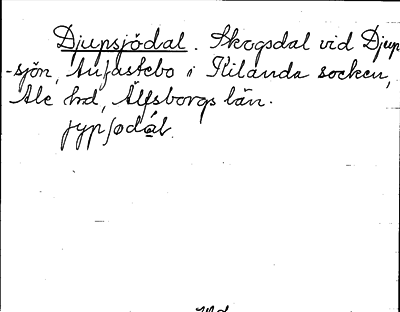 Djupsjödal. Skogsdal vid Djup
-sjön, Anfastebo i Kilanda socken,
Ale hd, Älfsborgs län.